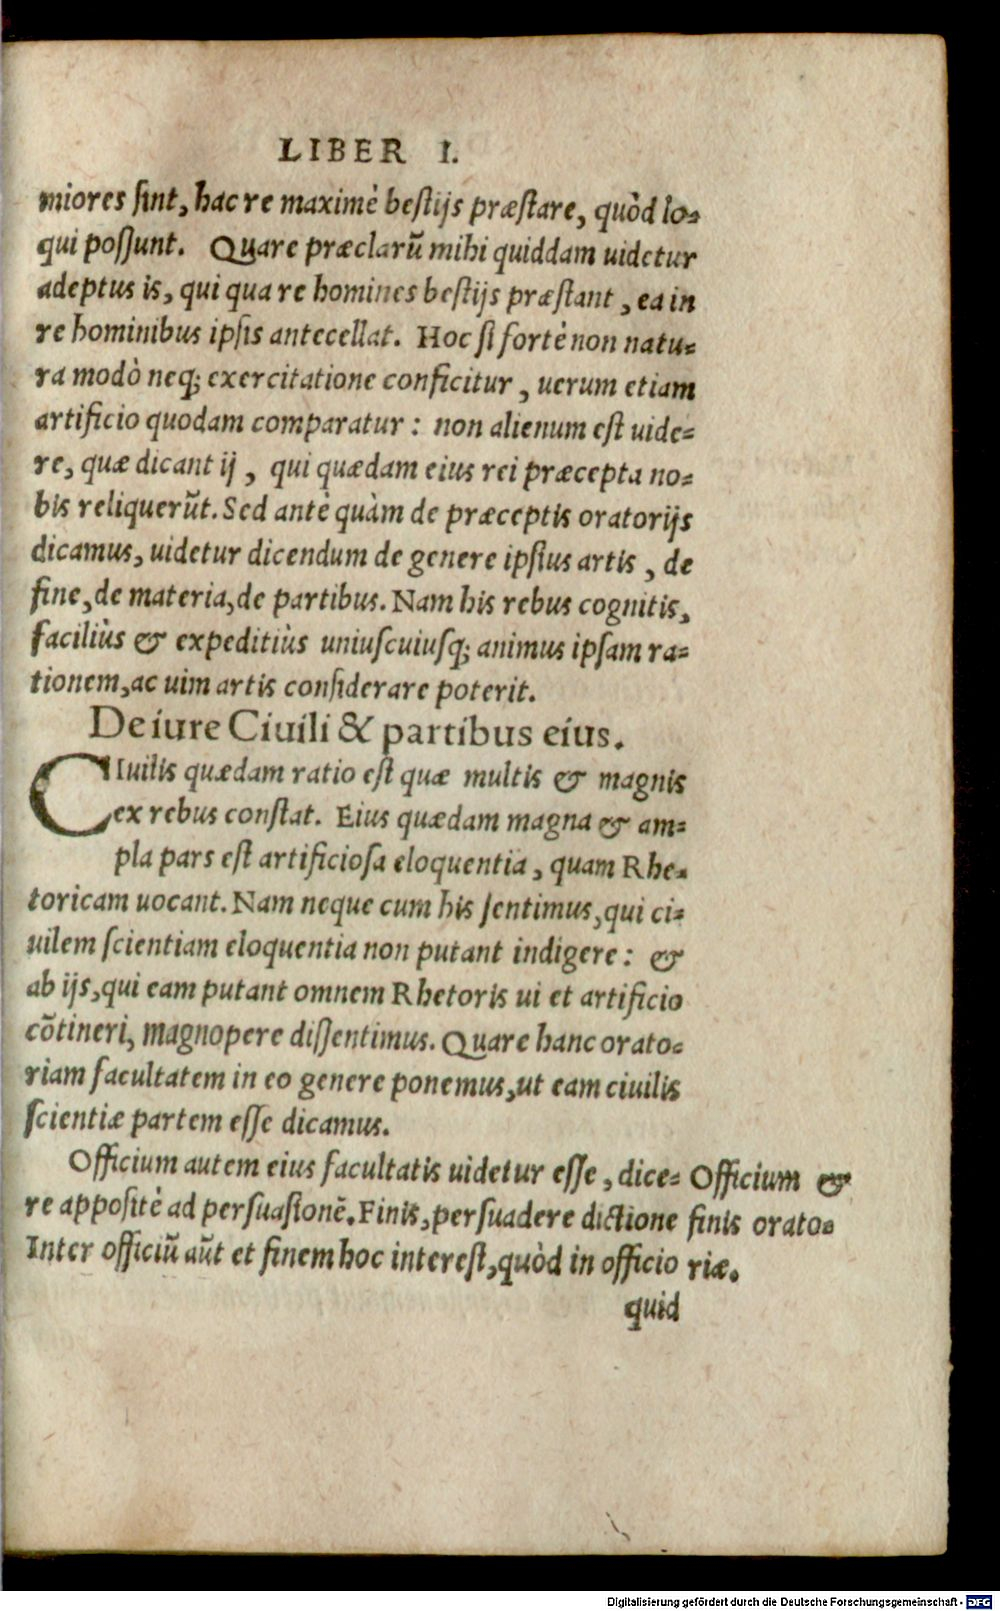 LIBER I.
miores sint, hac re maximè bestijs præstare, quòd lo-
qui possunt. Quare præclarũ mihi quiddam uidetur
adeptus is, qui qua re homines bestijs præstant, ea in
re hominibus ipsis antecellat. Hoc si fortè non natu-
ra modò neq; exercitatione conficitur, uerum etiam
artificio quodam comparatur: non alienum est uide-
re, quæ dicant ij, qui quædam eius rei præcepta no-
bis reliquerũt. Sed antè quàm de præceptis oratorijs
dicamus, uidetur dicendum de genere ipsius artis, de
fine, de materia, de partibus. Nam his rebus cognitis,
faciliùs & expeditiùs uniuscuiusq; animus ipsam ra-
tionem, ac uim artis considerare poterit.
De iure Ciuili & partibus eius.
CIuilis quædam ratio est quæ multis & magnis
ex rebus constat. Eius quædam magna & am-
pla pars est artificiosa eloquentia, quam Rhe-
toricam uocant. Nam neque cum his sentimus, qui ci-
uilem scientiam eloquentia non putant indigere: &
ab ijs, qui eam putant omnem Rhetoris ui et artificio
cõtineri, magnopere dissentimus. Quare hanc orato-
riam facultatem in eo genere ponemus, ut eam ciuilis
scientiæ partem esse dicamus.
Officium autem eius facultatis uidetur esse, dice-
re appositè ad persuasionẽ. Finis, persuadere dictione
Inter officiũ aũt et finem hoc interest, quòd in officio
quid
Officium &
finis orato-
riæ.
Digitalisierung gefördert durch die Deutsche Forschungsgemeinschaft - DFG